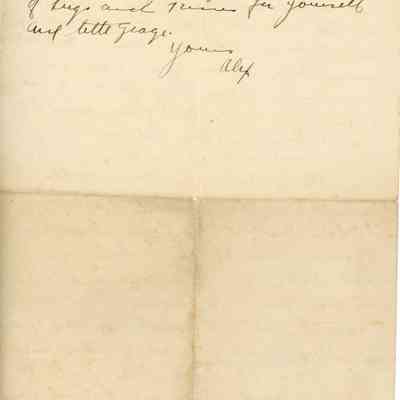 of hugs and kisses for yourself
and little George.
Yours
Alex